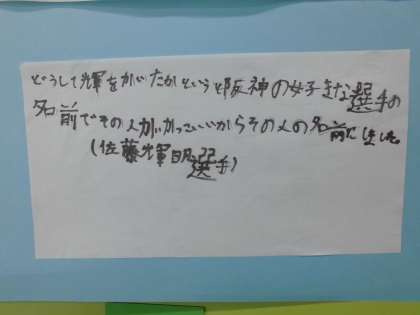 どうして輝をかいたかという阪神の好きな選手の
名前でその人がかっこいいからその人の名前にしました。
(佐藤輝明選手)